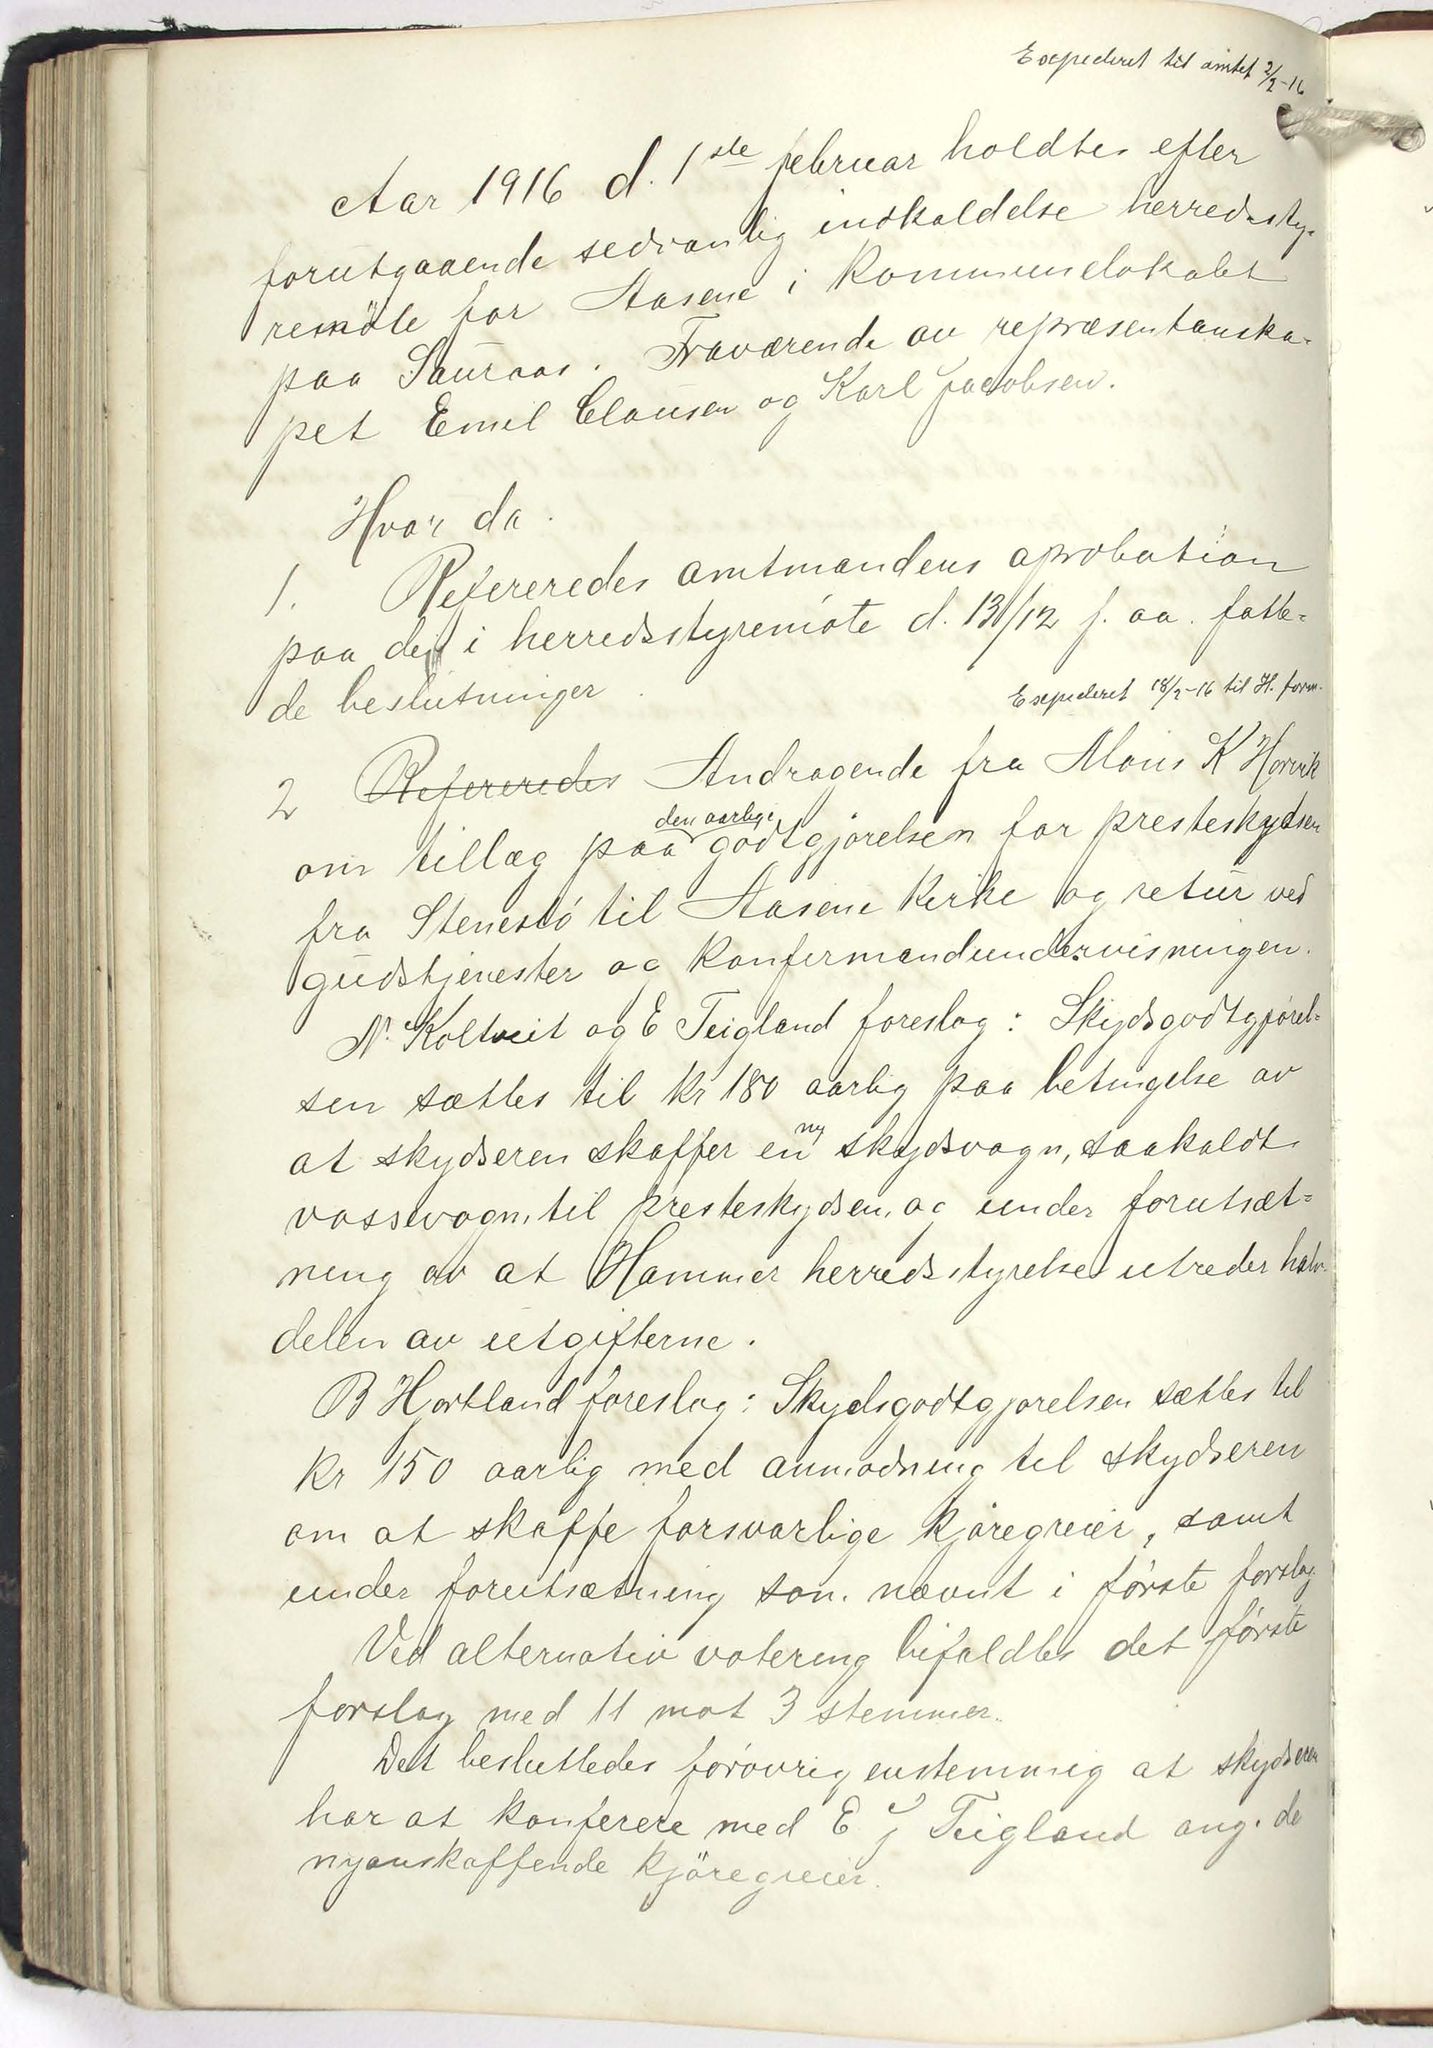 Expederet til amtet 2/2-16
Aar 1916 d. 1ste februar holdtes efter
forutgaaende sedvanlig indkaldelse herredssty-
remöte for Aasene i Kommunelokalet
paa Sauraas. Fraværende av repræsentanska-
pet Emil Clausen og Karl Jacobsen.
Hvor da.
1. Refereredes amtmandens aprobation
paa dei i herredsstyremöte d. 13/12 f. aa. fatte-
de beslutninger.
Expederet 18/2-16 til H. form.
2 Refereredes Andragende fra Mons K Horvik
om tillæg paa den aarlige godtgjörelsen for presteskydsen
fra Stenestö til Aasene Kirke og retur ved
gudstjenester og konfirmandundervisningen.
N. Koltveit og E Teigland foreslog: Skydsgodtgjörel-
sen sættes til kr 180 aarlig paa betingelse av
at skydseren skaffer en ny skydsvogn, saakaldt
vossevogn, til presteskydsen, og under forutsæt-
ning av at Hammer herredsstyrelse utreder halv-
delen av utgifterne.
B Hortland foreslog: Skydsgodtgjorelsen sættes til
kr 150 aarlig med anmodning til skydseren
om at skaffe forsvarlige kjöregreier, samt
under forutsætning som nævnt i förste forslag
Ved alternativ votering bifaldtes det förste
forslag med 11 mot 3 stemmer.
Det besluttedes forövrig enstemmig at skydseren
har at konferere med E J Teigland ang. de
nyanskaffende kjöregreier.